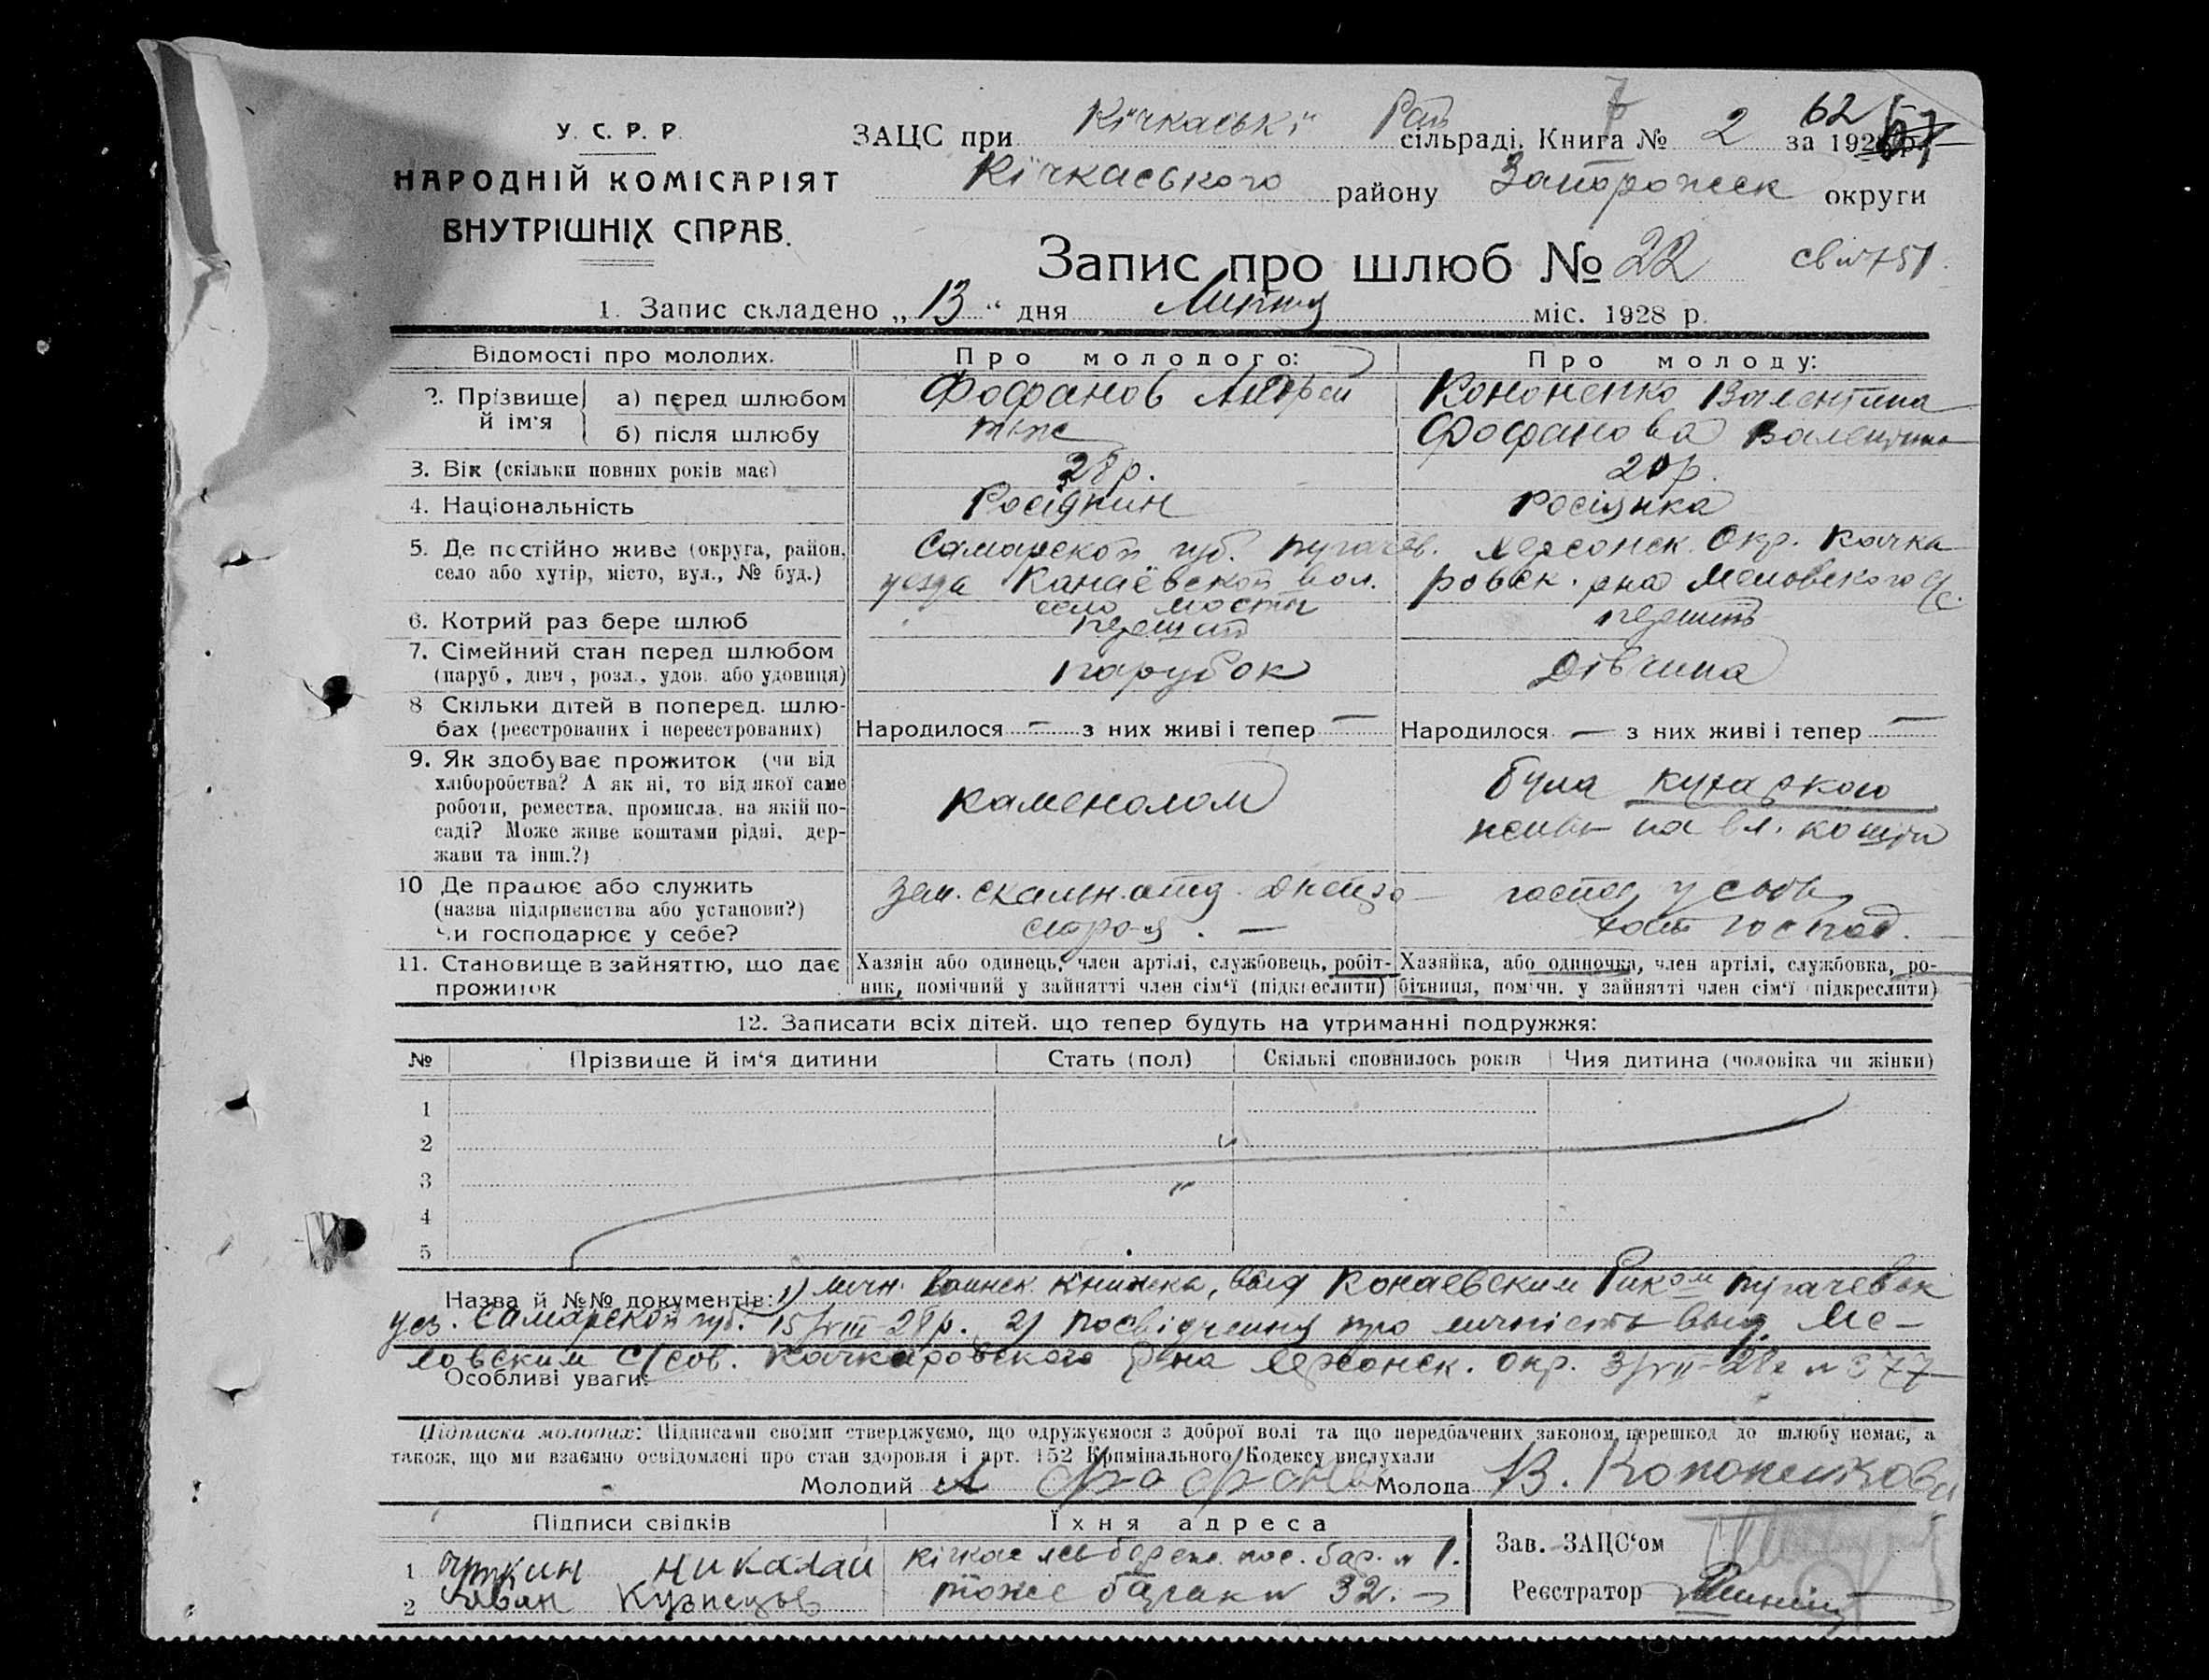 У. С. Р. Р.
НАРОДНІЙ КОМІСАРІЯТ
ВНУТРІШНІХ СПРАВ.
ЗАЦС при Кічкаській Рай сільраді. Книга № 2 за 192 р.
62
Кічкаського району Запорожск округи
Запис про шлюб № 22
1. Запис складено „ 13 “ дня Липня міс. 1928 р.
Відомості про молодих. Про молодого: Про молоду:
2. Прізвище й ім'я а) перед шлюбом Фофанов Андрей Кононенко Валентина
б) після шлюбу теж Фофанова Валентина
3. Вік (скільки повних років має) 28 р. 20 р.
4. Національність Росіянин Росіянка
5. Де постійно живе (округа, район, Самарской губ. Пугачев. Херсонск. Окр. Качка
село або хутір, місто, вул., № буд.) уезда Канаёвской вол. ровск. рна Меловского с/с.
село Мосты
6. Котрий раз бере шлюб первий первий
7. Сімейний стан перед шлюбом парубок дівчина
(паруб., дівч., розл., удов. або удовиця)
8 Скільки дітей в поперед. шлю-
бах (реєстрованих і нереєстрованих) Народилося — з них живі і тепер — Народилося — з них живі і тепер —
9. Як здобуває прожиток (чи від
хліборобства? А як ні, то від якої саме була кухаркою
роботи, ремества, промисла, на якій по- каменолом
саді? Може живе коштами рідні, дер- на вл. кошти
жави та інш.?)
10 Де працює або служить скальн. отд. Днепро-
(назва підприємства або установи?) строя. — у себе
Чи господарює у себе? господ.
11. Становище в зайняттю, що дає Хазяїн або одинець, член артілі, службовець, робіт- Хазяйка, або одиночка, член артілі, службовка, ро-
прожиток ник, помічний у зайнятті член сім'ї (підкреслити) бітниця, помічн. у зайнятті член сім'ї (підкреслити)
12. Записати всіх дітей, що тепер будуть на утриманні подружжя:
№ Прізвище й ім'я дитини Стать (пол) Скількі сповнилось років Чия дитина (чоловіка чи жінки)
1
2
3
4
5
Назва й №№ документів: 1) личн. воинск. книжка, выд Конаевским Риком Пугачевск
уез. Самарской губ. 15/VIII-28 р. 2) посвідчення про личність выд. Ме-
ловским с/сов. Качкаровского р-на Херсонск. окр. 3/VII-28 г № 377
Особливі уваги:
Підписка молодих: Підписами своїми стверджуємо, що одружуємося з доброї волі та що передбачених законом перешкод до шлюбу немає, а
також, що ми взаємно освідомлені про стан здоровля і арт. 152 Кримінального Кодексу вислухали
Молодий А Фофанов Молода В. Кононенкова
Підписи свідків Їхня адреса
Зав. ЗАЦС'ом
1 Николай Кічкас лев берег. пос. бар. № 1.
2 Иван Кузнецов тоже барак № 32. —
Реєстратор